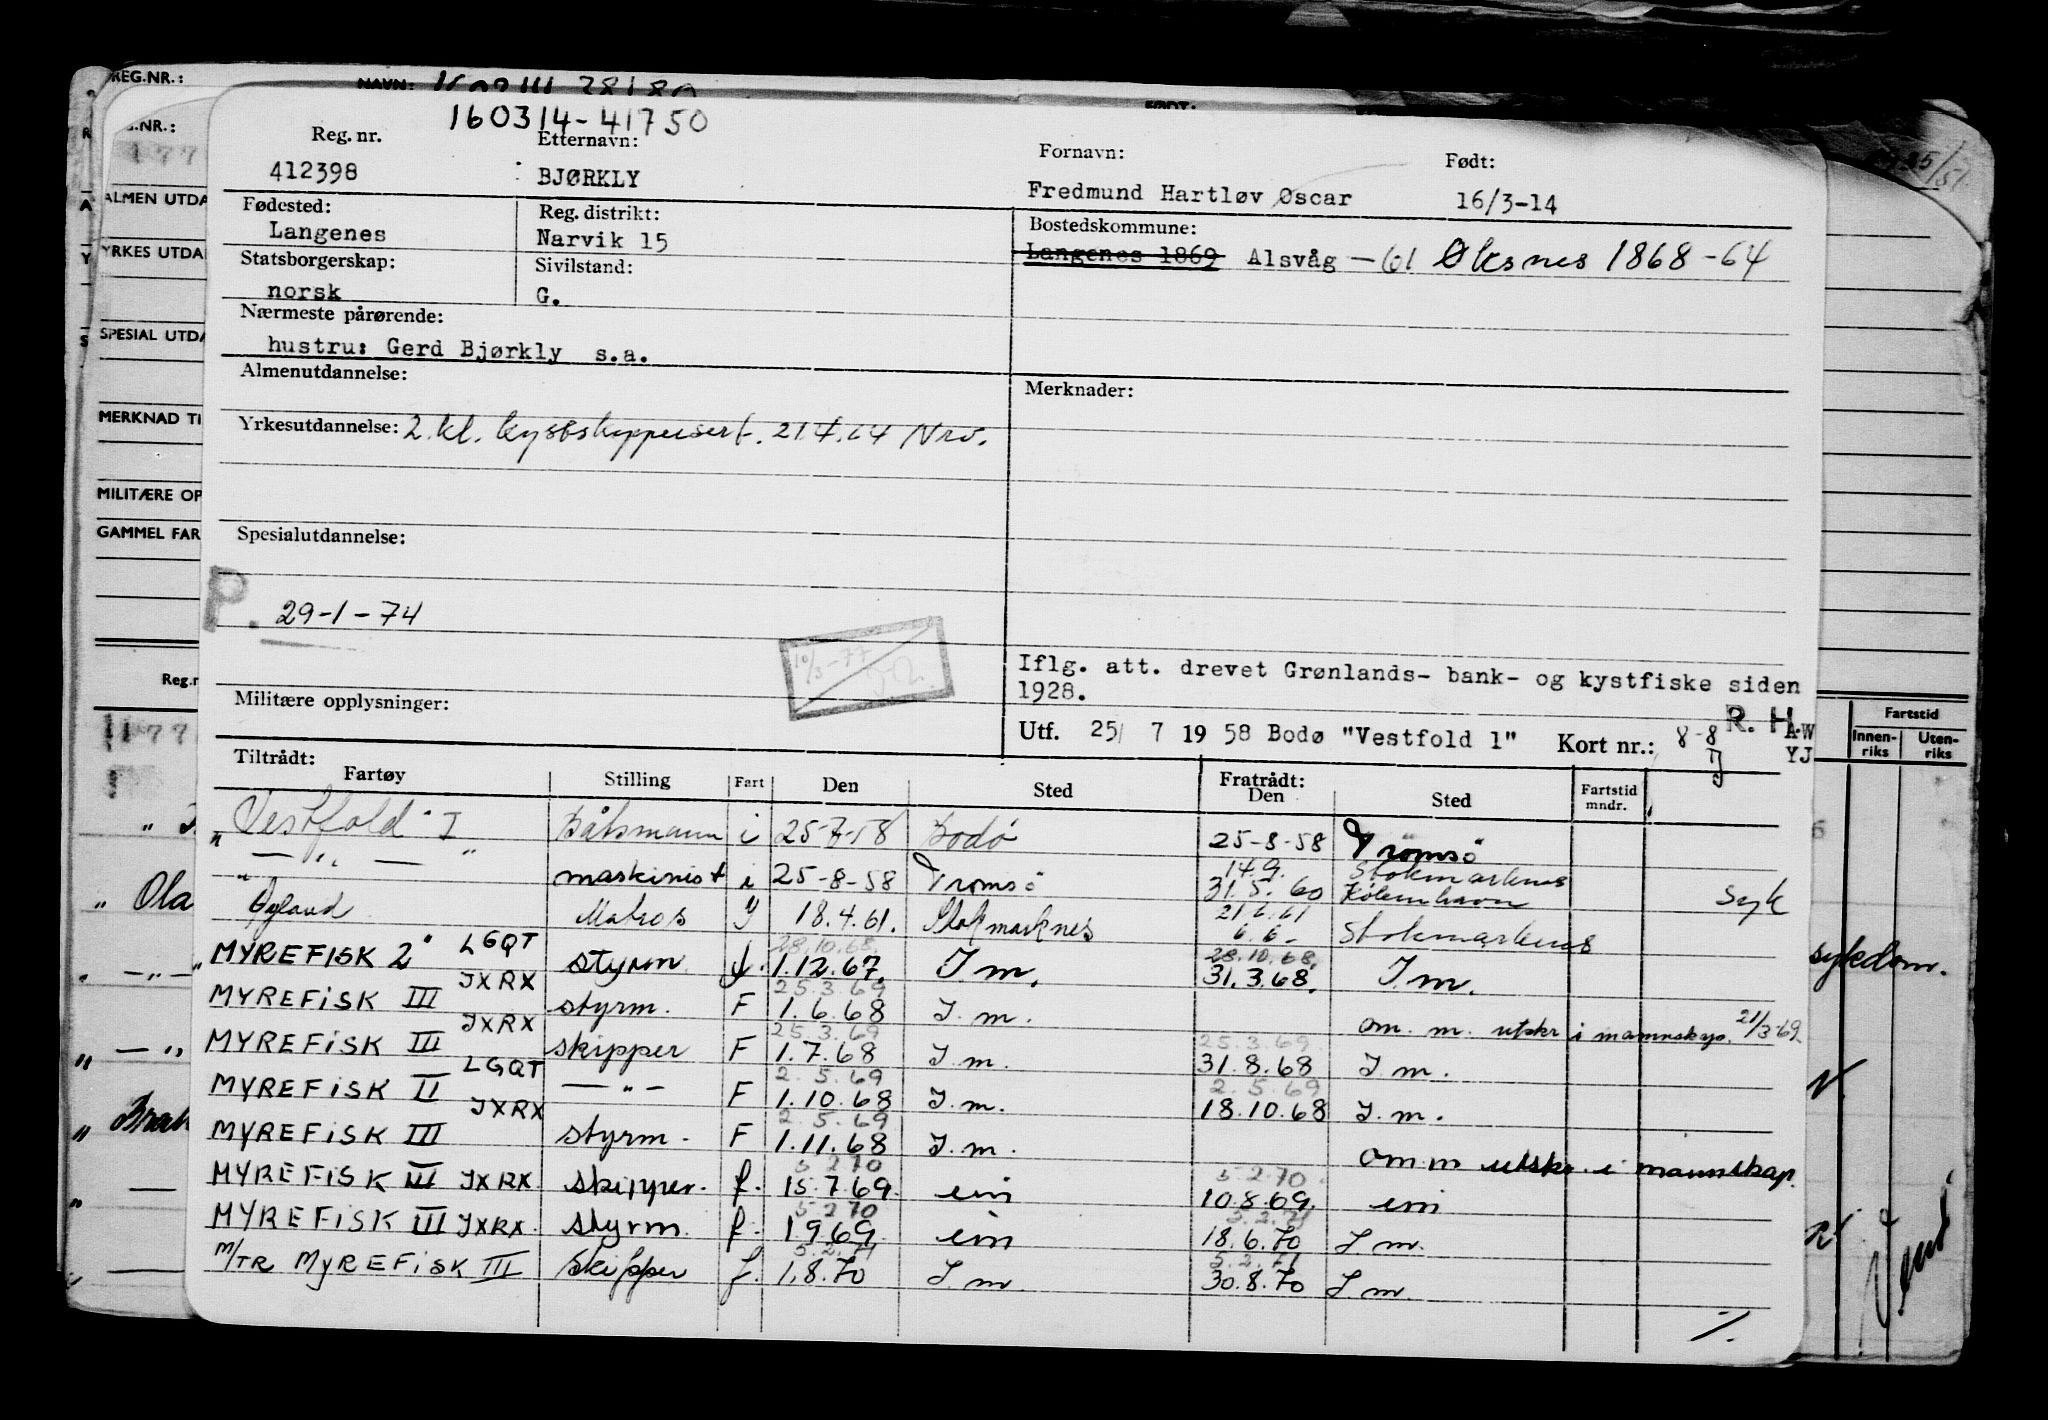 REG.NR.: NAVN: FØDT:
160314-41750
Reg. nr. Etternavn: Fornavn: Født:
412398 BJØRKLY Fredmund Hartløv Oscar 16/3-14
Fødested: Reg. distrikt: Bostedskommune:
Langenes Narvik 15 Langenes 1869 Alsvåg -61 Øksnes 1868-64
Statsborgerskap: Sivilstand:
norsk G.
Nærmeste pårørende:
hustru: Gerd Bjørkly s.a.
Almenutdannelse: Merknader:
Yrkesutdannelse: 2.kl. kystskippersert. 21.4.64 Nrv.
Spesialutdannelse:
P. 29-1-74
10/3-77
Iflg. att. drevet Grønlands- bank- og kystfiske siden
1928.
Militære opplysninger:
Utf. 25/ 7 19 58 Bodø "Vestfold 1" Kort nr.: 8-8 R. H.
Tiltrådt: Fratrådt:
Fartøy Stilling Fart Den Sted Den Sted Fartstid mndr.
"Vestfold I" Båtsmann i 25-7-58 Bodø 25-8-58 Tromsø
— " — maskinist i 25-8-58 Tromsø 14.9. Stokmarknes
31.5.60 København syk
Matros 18.4.61. Stokmarknes 21.6.61
6.6- Stokmarknes
28.10.68 28.10.68
MYREFISK 2" LGQT styrm f. 1.12.67. I m. 31.3.68. I m.
25.3.69
MYREFISK III JXRX styrm. F 1.6.68 I.m. om. m. utskr i mannskap. 21/3-69
25.3.69 25.3.69
MYREFISK III JXRX skipper F 1.7.68 I.m. 31.8.68 I.m.
2.5.69 2.5.69
MYREFISK II LGQT — " — F 1.10.68 I.m. 18.10.68 I.m.
2.5.69
MYREFISK III JXRX styrm. F 1.11.68 I.m. om m utskr i mannskap.
5 2 70 5 2 70
MYREFISK III JXRX skipper. f. 15.7.69. im 10.8.69. im
5 2 70 5.2.71
MYREFISK III JXRX. styrm. f. 1 9 69. im 18.6.70 I m.
5.2.71 5.2.71
M/TR MYREFISK III Skipper f. 1.8.70 I.m. 30.8.70 I m.
%.
ALMEN UTDA
YRKES UTDA
SPESIAL UTDA
MERKNAD TI
MILITÆRE OP
GAMMEL FAR
Reg.n
Fartstid
Innen-riks Uten-riks
sykdom.